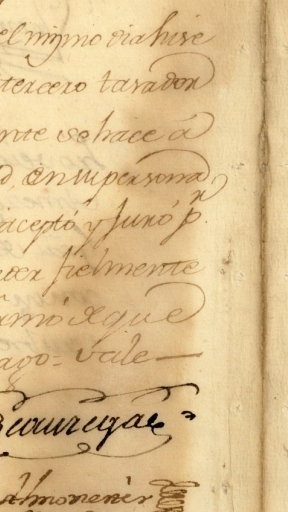 el mismo dia hise
tercero tasador
nte se hace á
d. en su persona
acepto y juró pr.
fielmente
mó de que
ago = vale —
Beauregar
Almonener